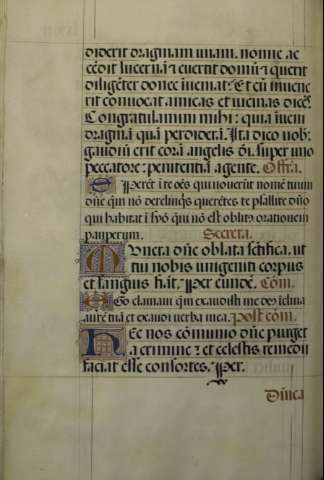 diderit dragmam unam. nonne ac
cēdit lucernā ⁊ evertit domū ⁊ querit
diligēter donec iveniat: Et cū invene
rit convocat amicas et vicinas dicēs.
Congratulamini mihi: quia iveni
dragmā quā perdiderā. Ita dico vob:
gaudiū erit corā angelis dei. super uno
peccatore: penitentiā agente. Offra.
Sperēt ī te oēs qui noverūt nomē tuum
dñe qm̄ nō derelinq̄s querētes te psallite dño
qui habitat ī syō qm̄ nō est oblitꝰ orationem
pauperum. Secreta.
Munera dñe oblata sctifica. ut
tui nobis unigeniti corpus
et sanguis fiāt. Per eundē. Cōm.
Ego clamavi qm̄ exaudisti me deꝰ iclina
aurē tuā et exaudi verba mea. Post cōm.
Hec nos cōmunio dñe purget
a crimine ⁊ et celestis remedii
faciat esse consortes. Per.
Dñica